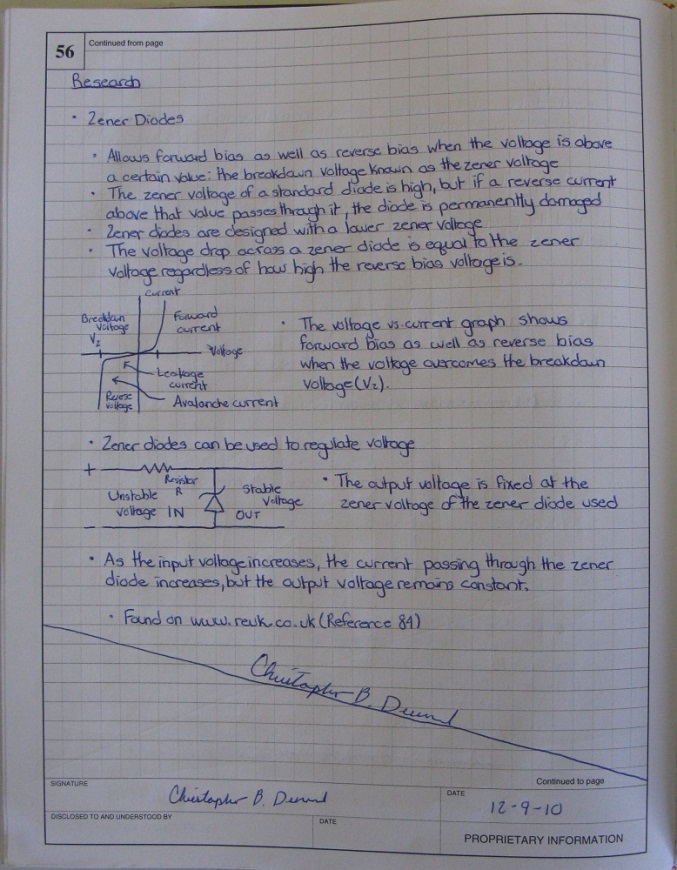 56
Continued from page
Research
• Zener Diodes
• Allows forward bias as well as reverse bias when the voltage is above
a certain value: the breakdown voltage known as the zener voltage
• The zener voltage of a standard diode is high, but if a reverse current
above that value passes through it, the diode is permanently damaged
• Zener diodes are designed with a lower zener voltage
• The voltage drop across a zener diode is equal to the zener
voltage regardless of how high the reverse bias voltage is.
Current
Breakdown
Voltage
Vz
Forward
current
Voltage
Leakage
current
Reverse
Voltage
Avalanche current
• The voltage vs. current graph shows
forward bias as well as reverse bias
when the voltage overcomes the breakdown
voltage (Vz).
• Zener diodes can be used to regulate voltage
+
Resistor
R
Unstable
voltage IN
Stable
Voltage
OUT
–
• The output voltage is fixed at the
zener voltage of the zener diode used
• As the input voltage increases, the current passing through the zener
diode increases, but the output voltage remains constant.
• Found on www.reuk.co.uk (Reference 84)
Christopher B.
SIGNATURE
Christopher B.
Continued to page
DATE
12-9-10
DISCLOSED TO AND UNDERSTOOD BY
DATE
PROPRIETARY INFORMATION